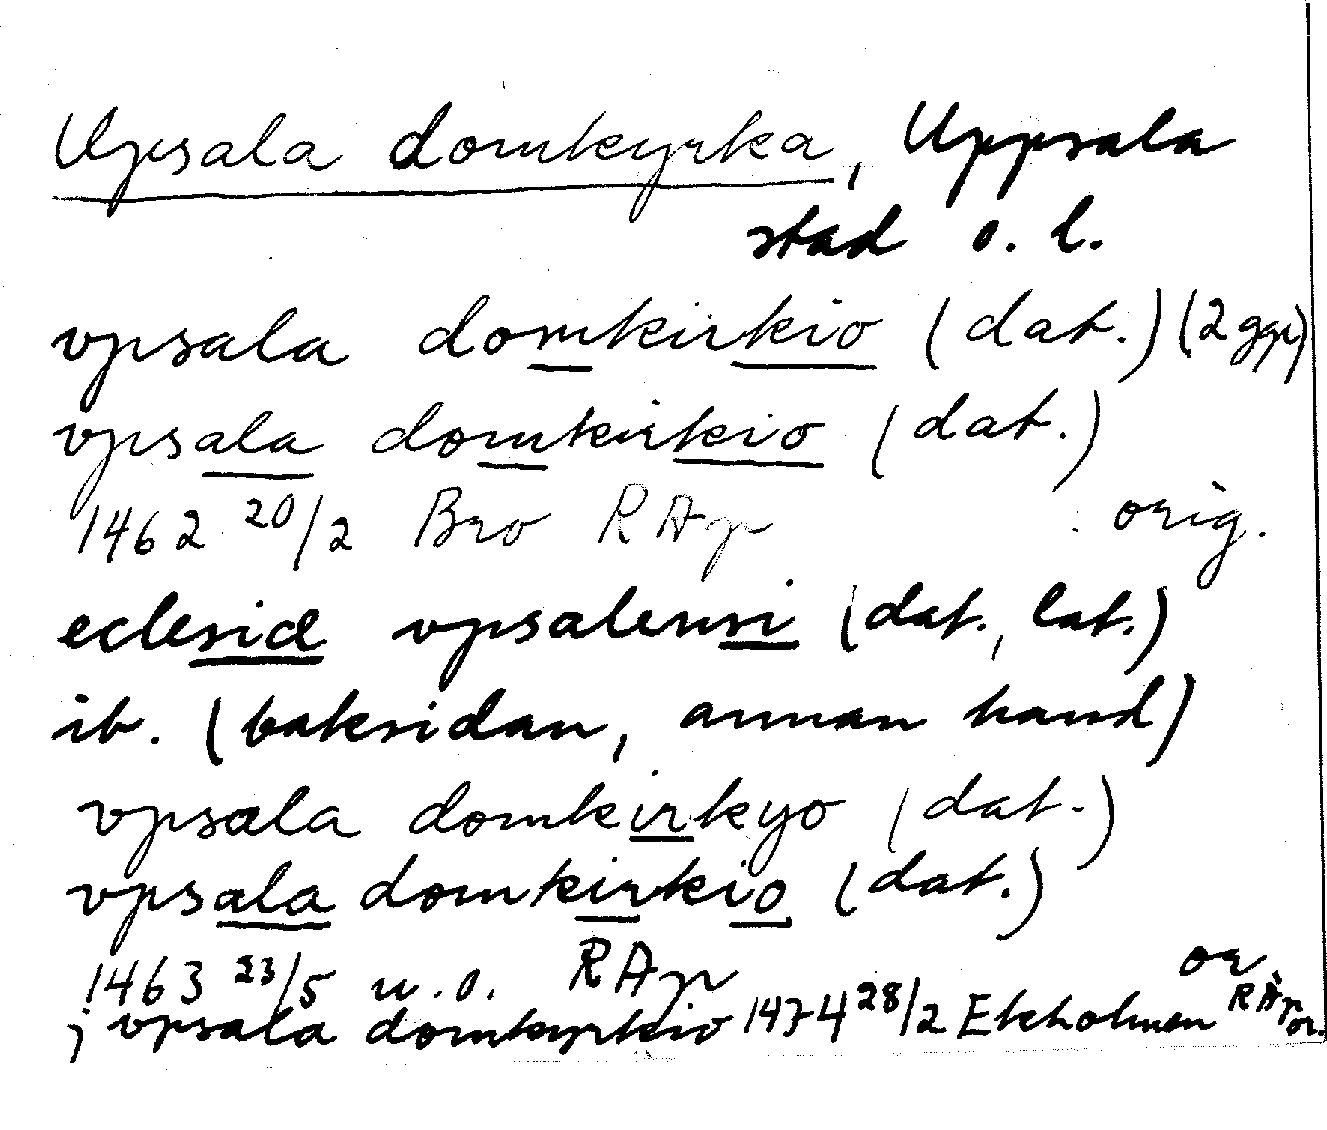 Upsala domkyrka, Uppsala
stad o. l.
vpsala domkirkio (dat.) (2 ggr)
vpsala domkirkio (dat.)
1462 20/2 Bro RAp orig.
eclesie vpsalensi (dat., lat.)
ib. (baksidan, annan hand)
vpsala domkirkyo (dat.)
vpsala domkirkio (dat.)
1463 23/5 u.o. RAp or.
j vpsala domkyrkio 1474 28/2 Ekholmen RAp or.